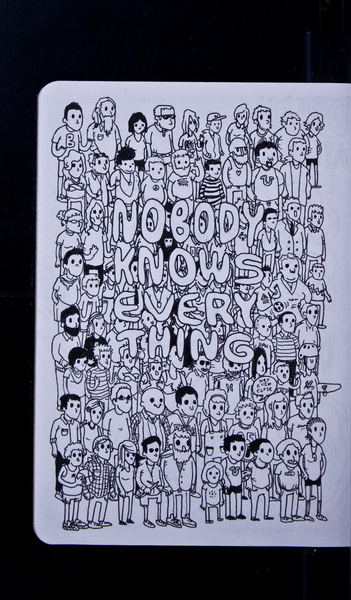 NOBODY
KNOWS
EVERY
THING